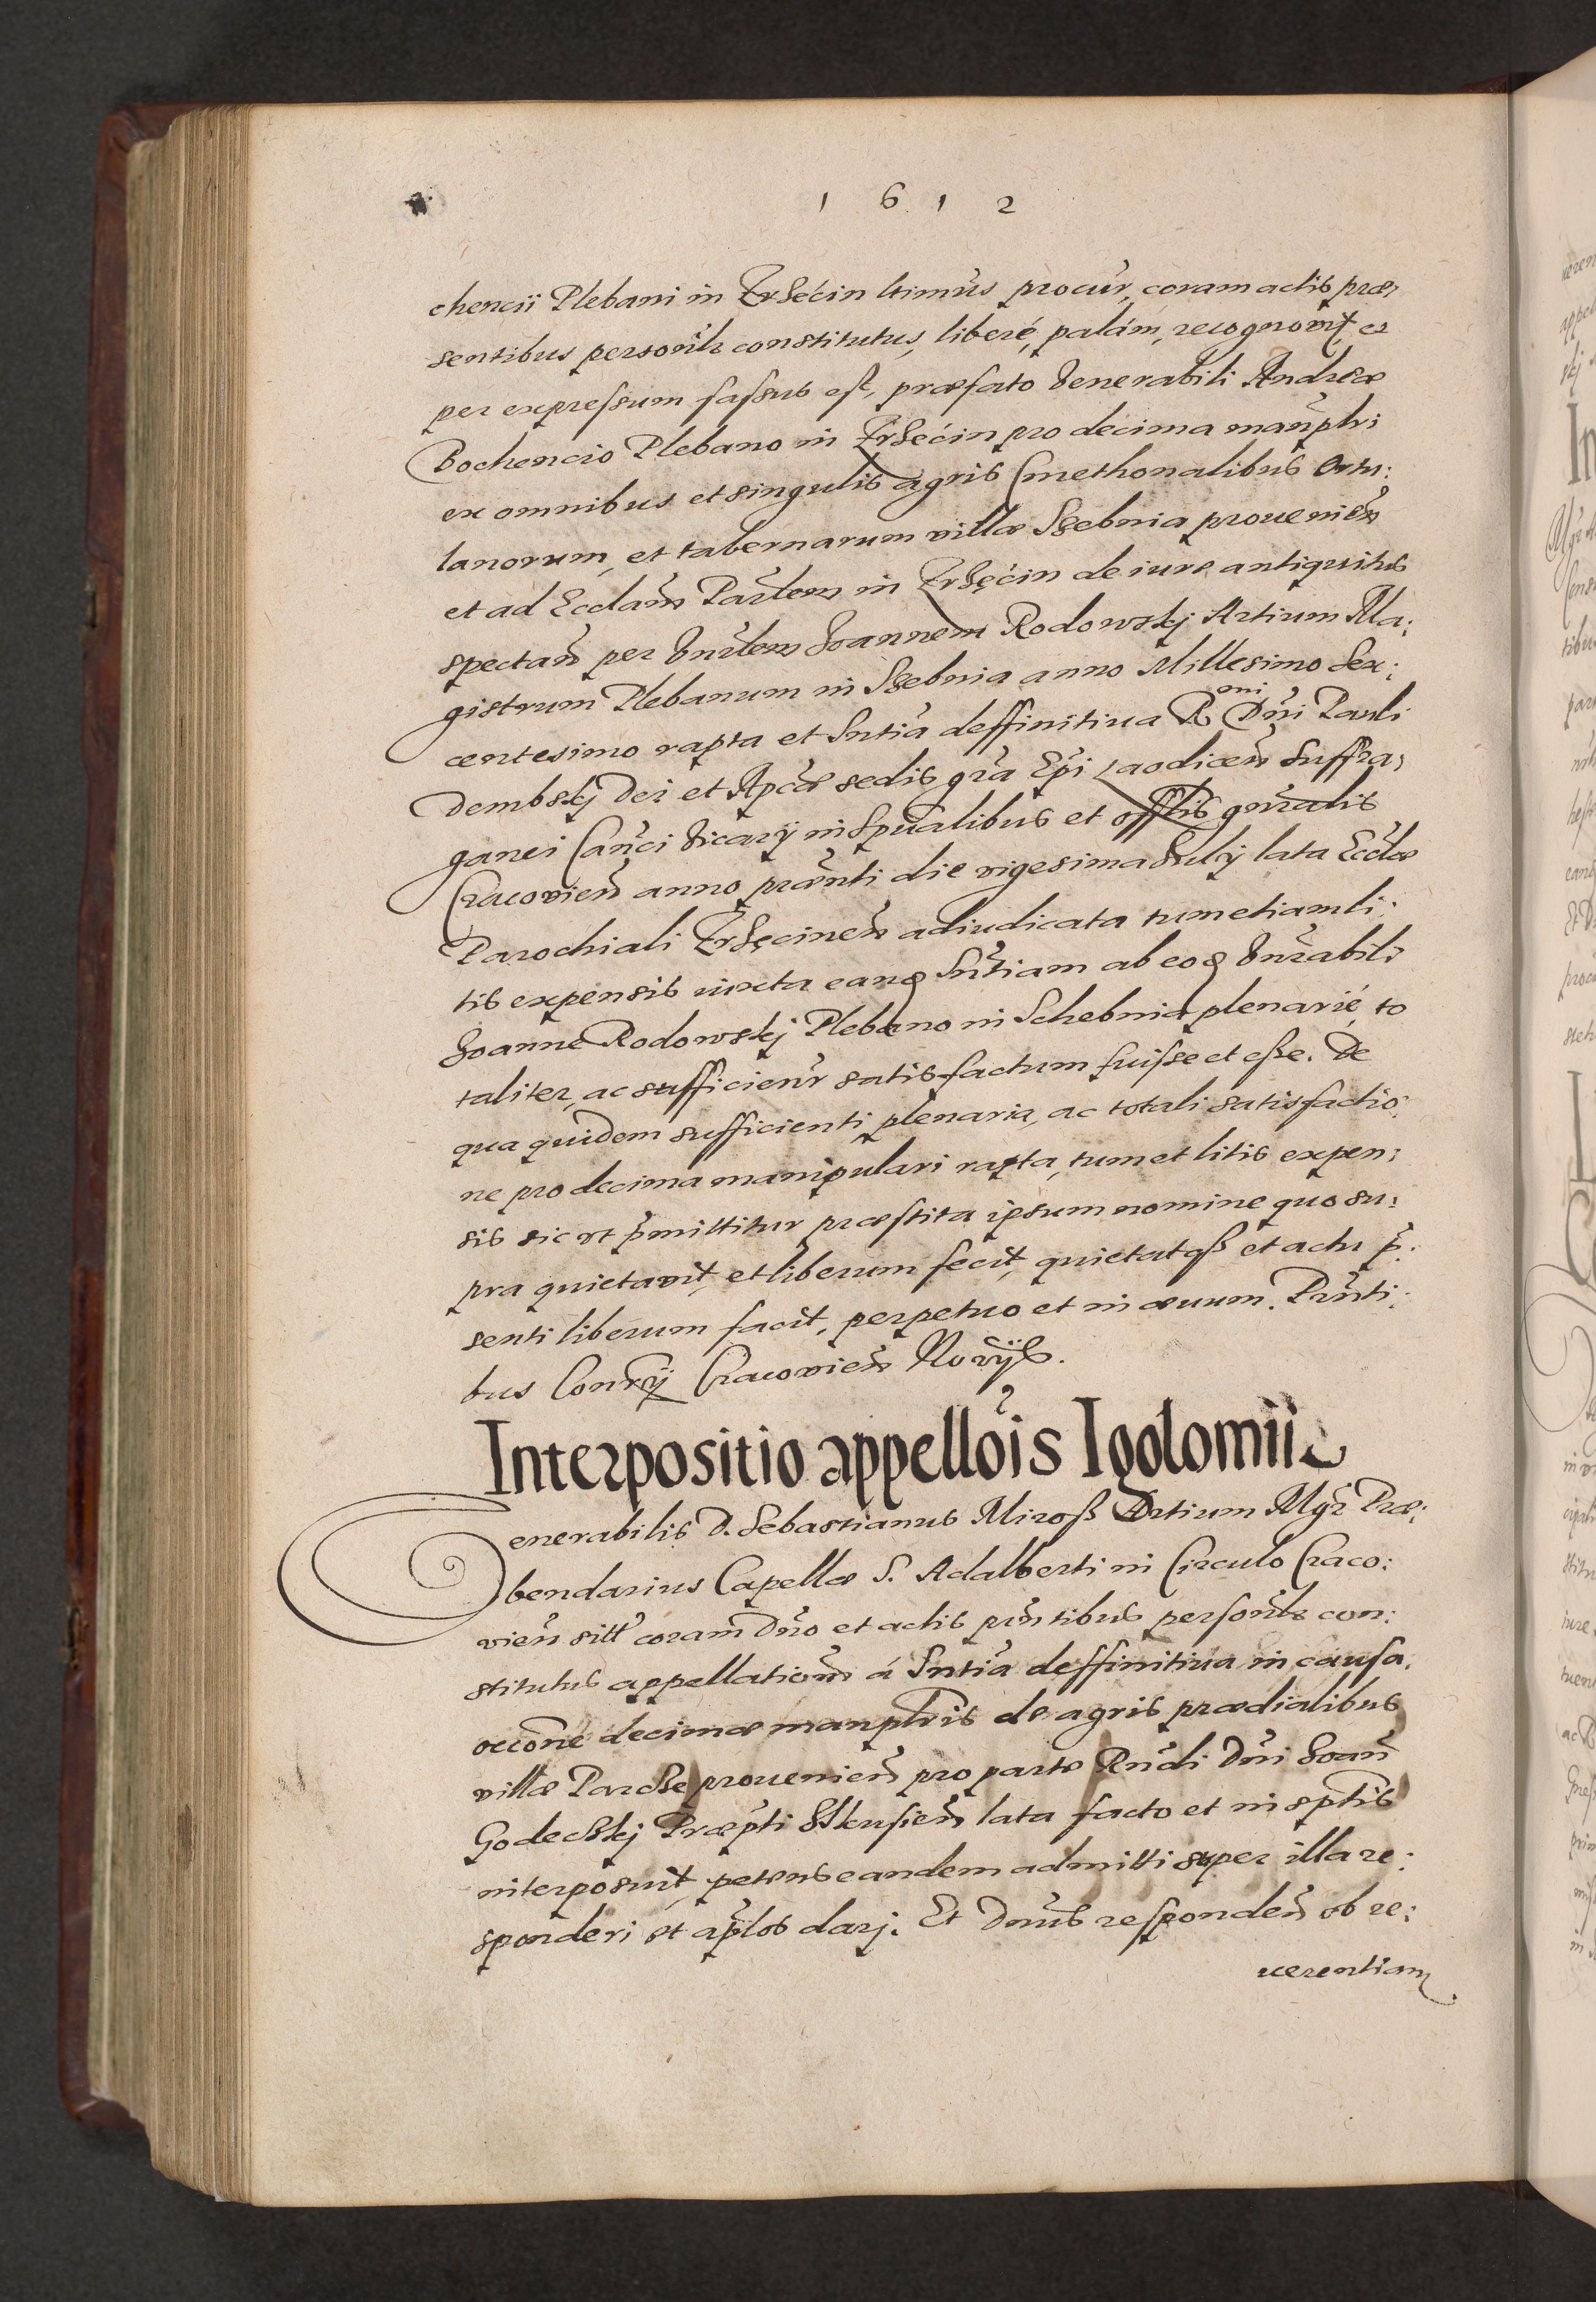 1612
chencii Plebani in Trzećin ltimus procur, coram actis præ,
sentibus personlr constitutus, liberé, palám, recognovit, et
per expressum fassus est, præfato Venerabili Andreæ
Bochencio Plebano in Trzećin pro decima manplri
ex omnibus et singulis agris Cmethonalibus Ortu:
lanorum, et tabernarum villæ Szebnia prouenien
et ad Ecclam Parlem in Trzęćin de iure antiquitus
spectan per Vnrlem Joannem Rodowskj Artium Ma:
gistrum Plebanum in Szebnia anno Millesimo Sex:
centesimo rapta et Sntia deffinitiua Rmi Dni Pauli
Dembskj Dei et Apcæ sedis gra Epi Laodicen Suffra,
ganei Canci Vicarij in Spualibus et offlis gnralis
Cracovien anno prænti die vigesima Julij lata Ecclæ
Parochiali Trzęcinen adiudicata tum etiam li:
tis expensis iuxta eandẽ Sntiam ab eodẽ Vnrabili
Joanne Rodowskj Plebano in Schebnia plenarié, to
taliter, ac sufficienr satisfactum fuisse et esse. De
qua quidem sufficienti plenaria, ac totali satisfactio:
ne pro decima manipulari rapta, tum et litis expen:
sis sic ut pmittitur præstita ipsum nomine quo su:
pra quietavit, et liberum fecit, quietatqß et actu p:
senti liberum facit, perpetuo et in æuum. Prnti:
bus Consrij Cracovien Norijs.
Interpositio appellois Igolomii
Venerabilis D. Sebastianus Miroß Artium Mgr Præ:
bendarius Capellæ S. Adalberti in Circulo Craco:
vien sitæ coram Dno et actis pntibus personlr con:
stitutus appellationem á Sntia deffinitiua in causa
occone decimæ manplris de agris prædialibus
villæ Parcze prouenien pro parte Rendi Dni Joan
Godeczkj Præpti Ilkusien lata facto et in sptis
interposuit, petens eandem admitti super illa re:
sponderi et aplos darj. Et Dnus responden ob re:
uerentiam